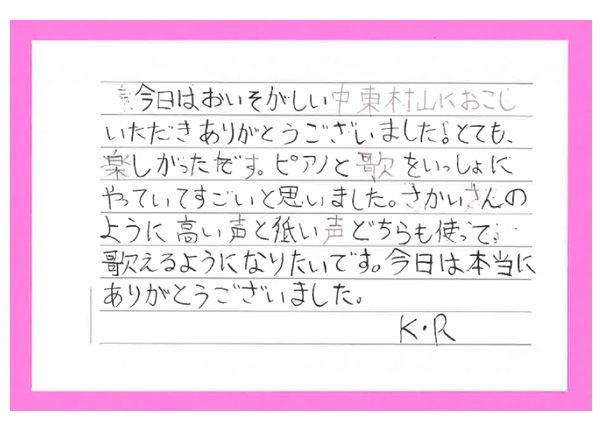 今日はおいそがしい中東村山におこし
いただきありがとうございました!とても、
楽しかったです。ピアノと歌をいっしょに
やっていてすごいと思いました。さかいさんの
ように高い声と低い声どちらも使って、
歌えるようになりたいです。今日は本当に
ありがとうございました。
K・R